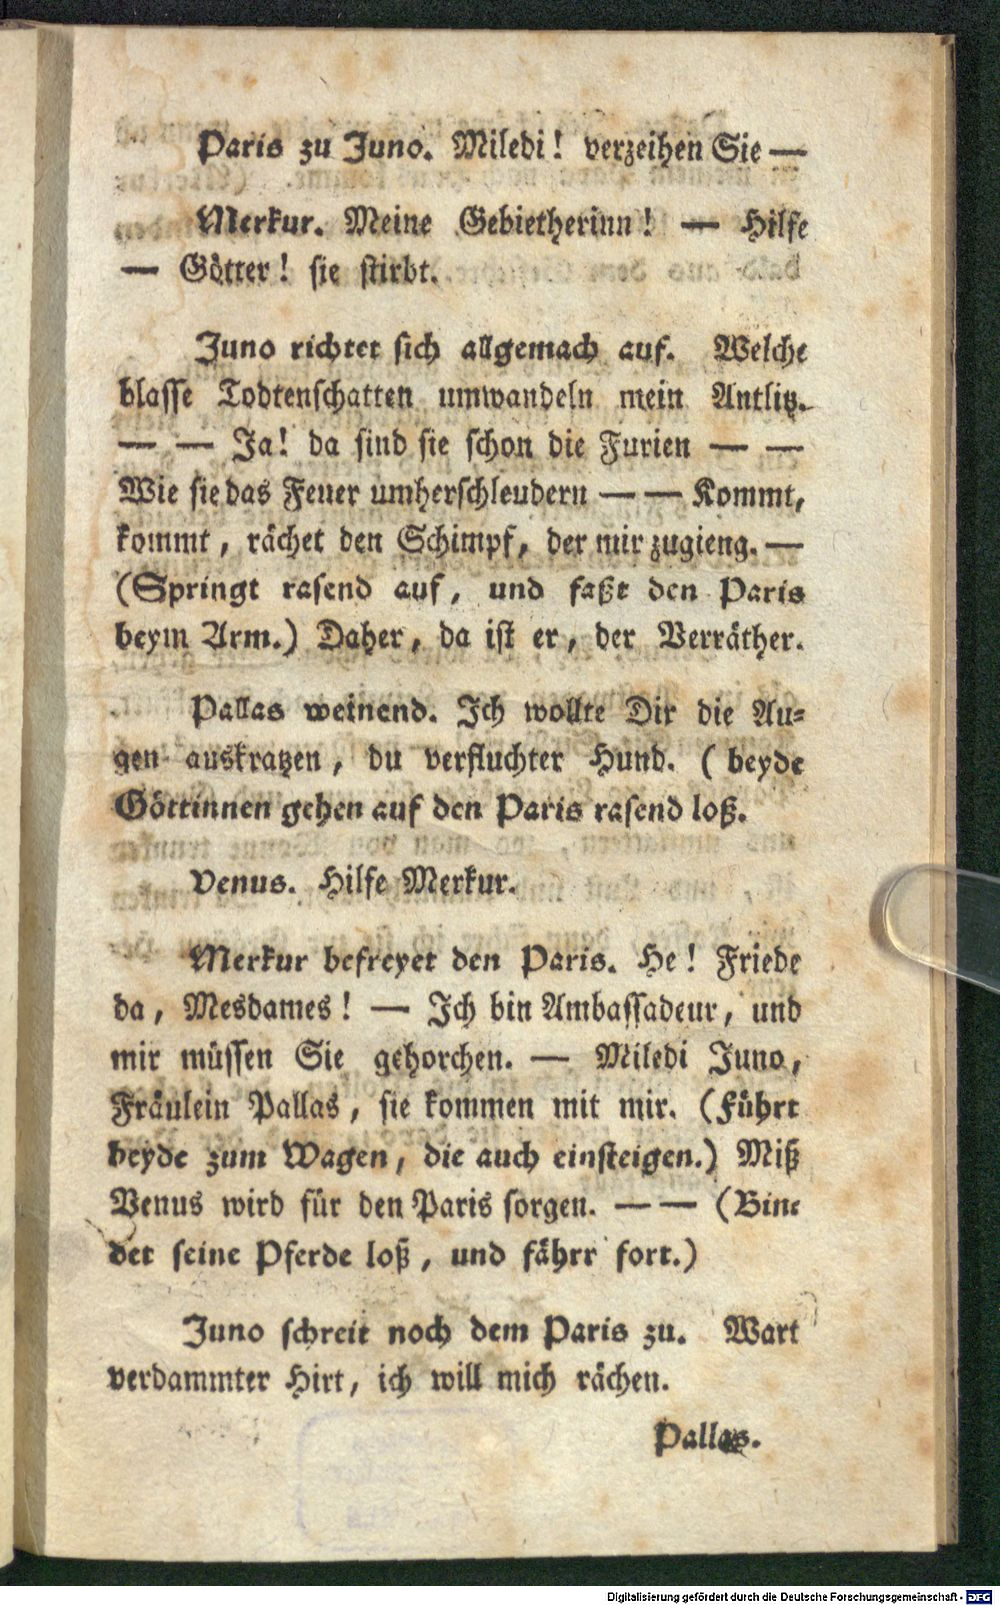 Paris zu Juno. Miledi! verzeihen Sie —
Merkur. Meine Gebietherinn! — Hilfe
— Götter! sie stirbt.
Juno richtet sich allgemach auf. Welche
blasse Todtenschatten umwandeln mein Antlitz.
— — Ja! da sind sie schon die Furien — —
Wie sie das Feuer umherschleudern — — Kommt,
kommt, rächet den Schimpf, der mir zugieng. —
(Springt rasend auf, und faßt den Paris
beym Arm.) Daher, da ist er, der Verräther.
Pallas weinend. Ich wollte Dir die Au-
gen auskratzen, du verfluchter Hund. (beyde
Göttinnen gehen auf den Paris rasend loß.
Venus. Hilfe Merkur.
Merkur befreyet den Paris. He! Friede
da, Mesdames! — Ich bin Ambassadeur, und
mir müssen Sie gehorchen. — Miledi Juno,
Fräulein Pallas, sie kommen mit mir. (Führt
beyde zum Wagen, die auch einsteigen.) Miß
Venus wird für den Paris sorgen. — — (Bin-
det seine Pferde loß, und fährt fort.)
Juno schreit noch dem Paris zu. Wart
verdammter Hirt, ich will mich rächen.
Pallas.
Digitalisierung gefördert durch die Deutsche Forschungsgemeinschaft - DFG